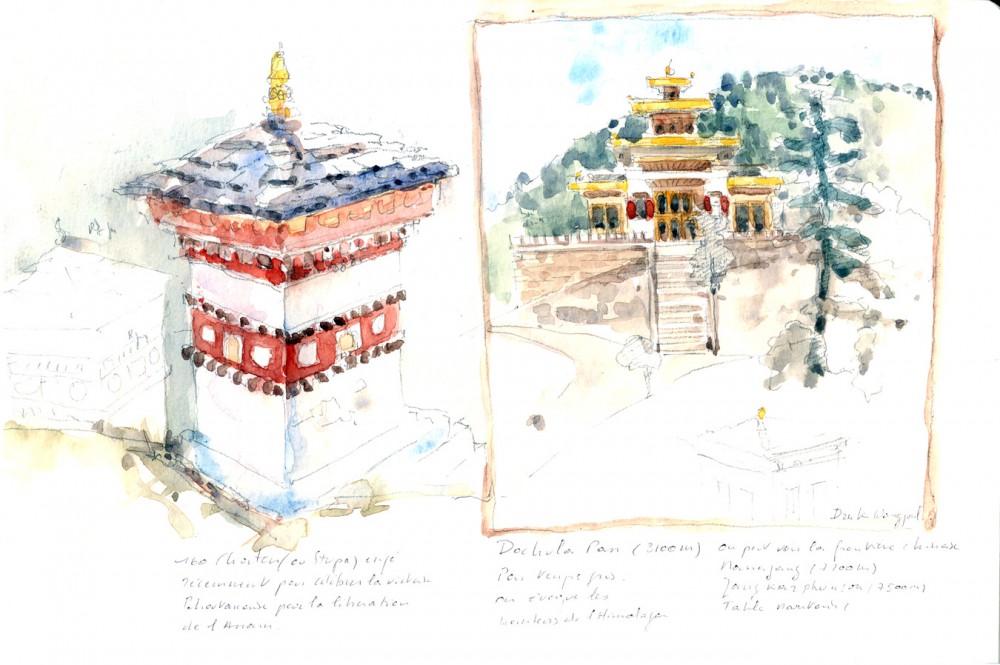 160 Chorten (ou Stupa) érigé
récemment pour célébrer la victoire
Bhoutanaise pour la libération
de l'Assam.
Druk Wangyal
Dochula Pass (3100m)
Par temps gris.
on évoque les
de l'Himalaya
on peut voir la frontière chinoise
(7500m)
Table